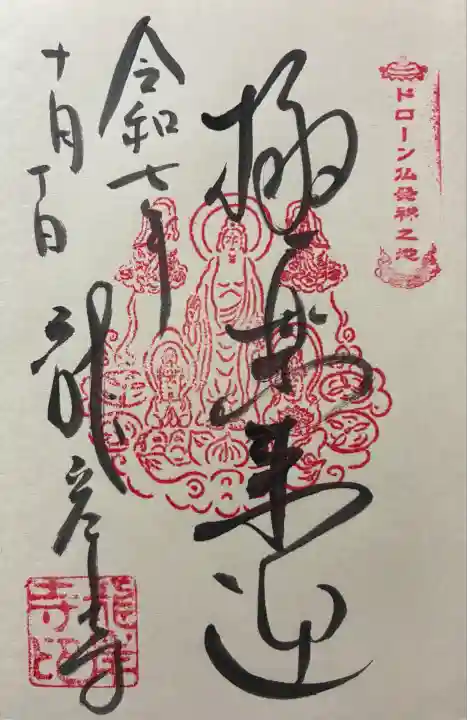 ドローン仏発祥之地
極楽来迎
令和七年
十月 日
龍岸寺
龍岸寺印